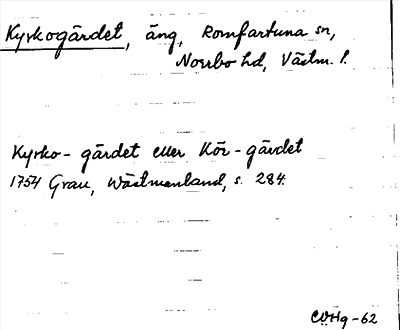 Kyrkogärdet, äng, Romfartuna sn,
Norrbo hd, Västm. l.
Kyrko-gärdet eller Kör-gärdet
1754 Grau, Wästmanland, s. 284.
CVHg-62